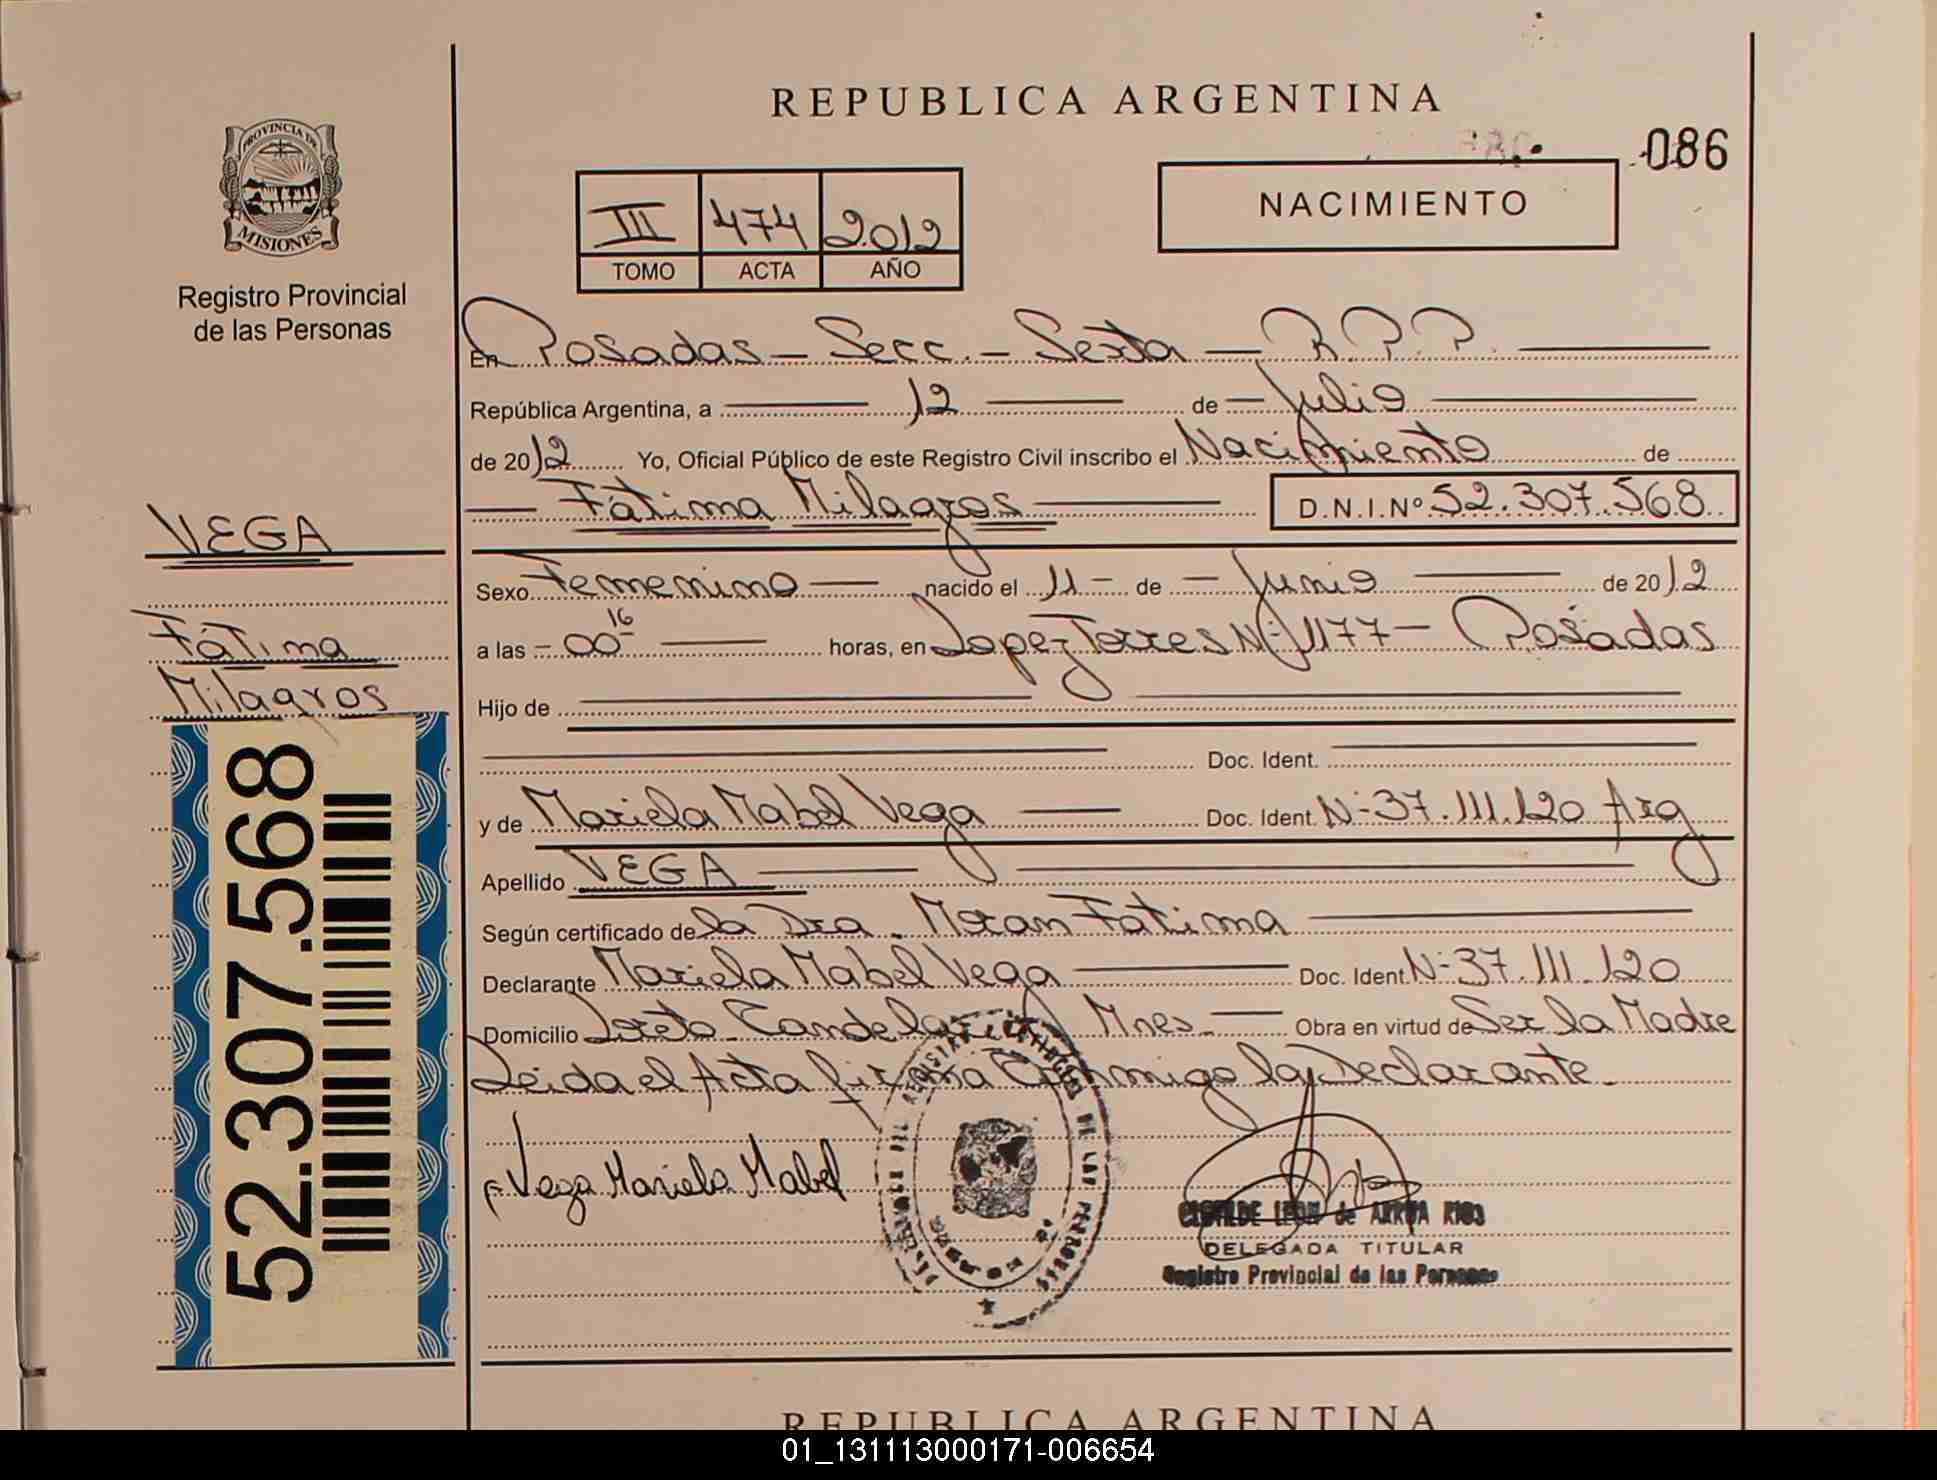 REPUBLICA ARGENTINA
086
PROVINCIA DE
MISIONES
Registro Provincial
de las Personas
III 474 2012
TOMO ACTA AÑO
NACIMIENTO
En Posadas - Secc. - Sexta - R.P.P.
República Argentina, a 12 de Julio
de 2012 Yo, Oficial Público de este Registro Civil inscribo el Nacimiento de
Fátima Milagros D.N.I.Nº 52.307.568
VEGA
Fátima
Milagros
52.307.568
Sexo Femenino nacido el 11 - de - Junio de 2012
a las - 00 16 horas, en Lopez Torres Nº 1177 - Posadas
Hijo de
Doc. Ident.
y de Mariela Mabel Vega Doc. Ident. Nº 37.111.120 Arg
Apellido VEGA
Según certificado de la Dra. Moran Fatima
Declarante Mariela Mabel Vega Doc. Ident. Nº 37.111.120
Domicilio Loreto - Candelaria Mnes. - Obra en virtud de Ser la Madre
Leida el Acta firma Conmigo la Declarante.
Vega Mariela Mabel
CLOTILDE LEON de ARRUA RIOS
DELEGADA TITULAR
Registro Provincial de las Personas
REPUBLICA ARGENTINA
01_131113000171-006654